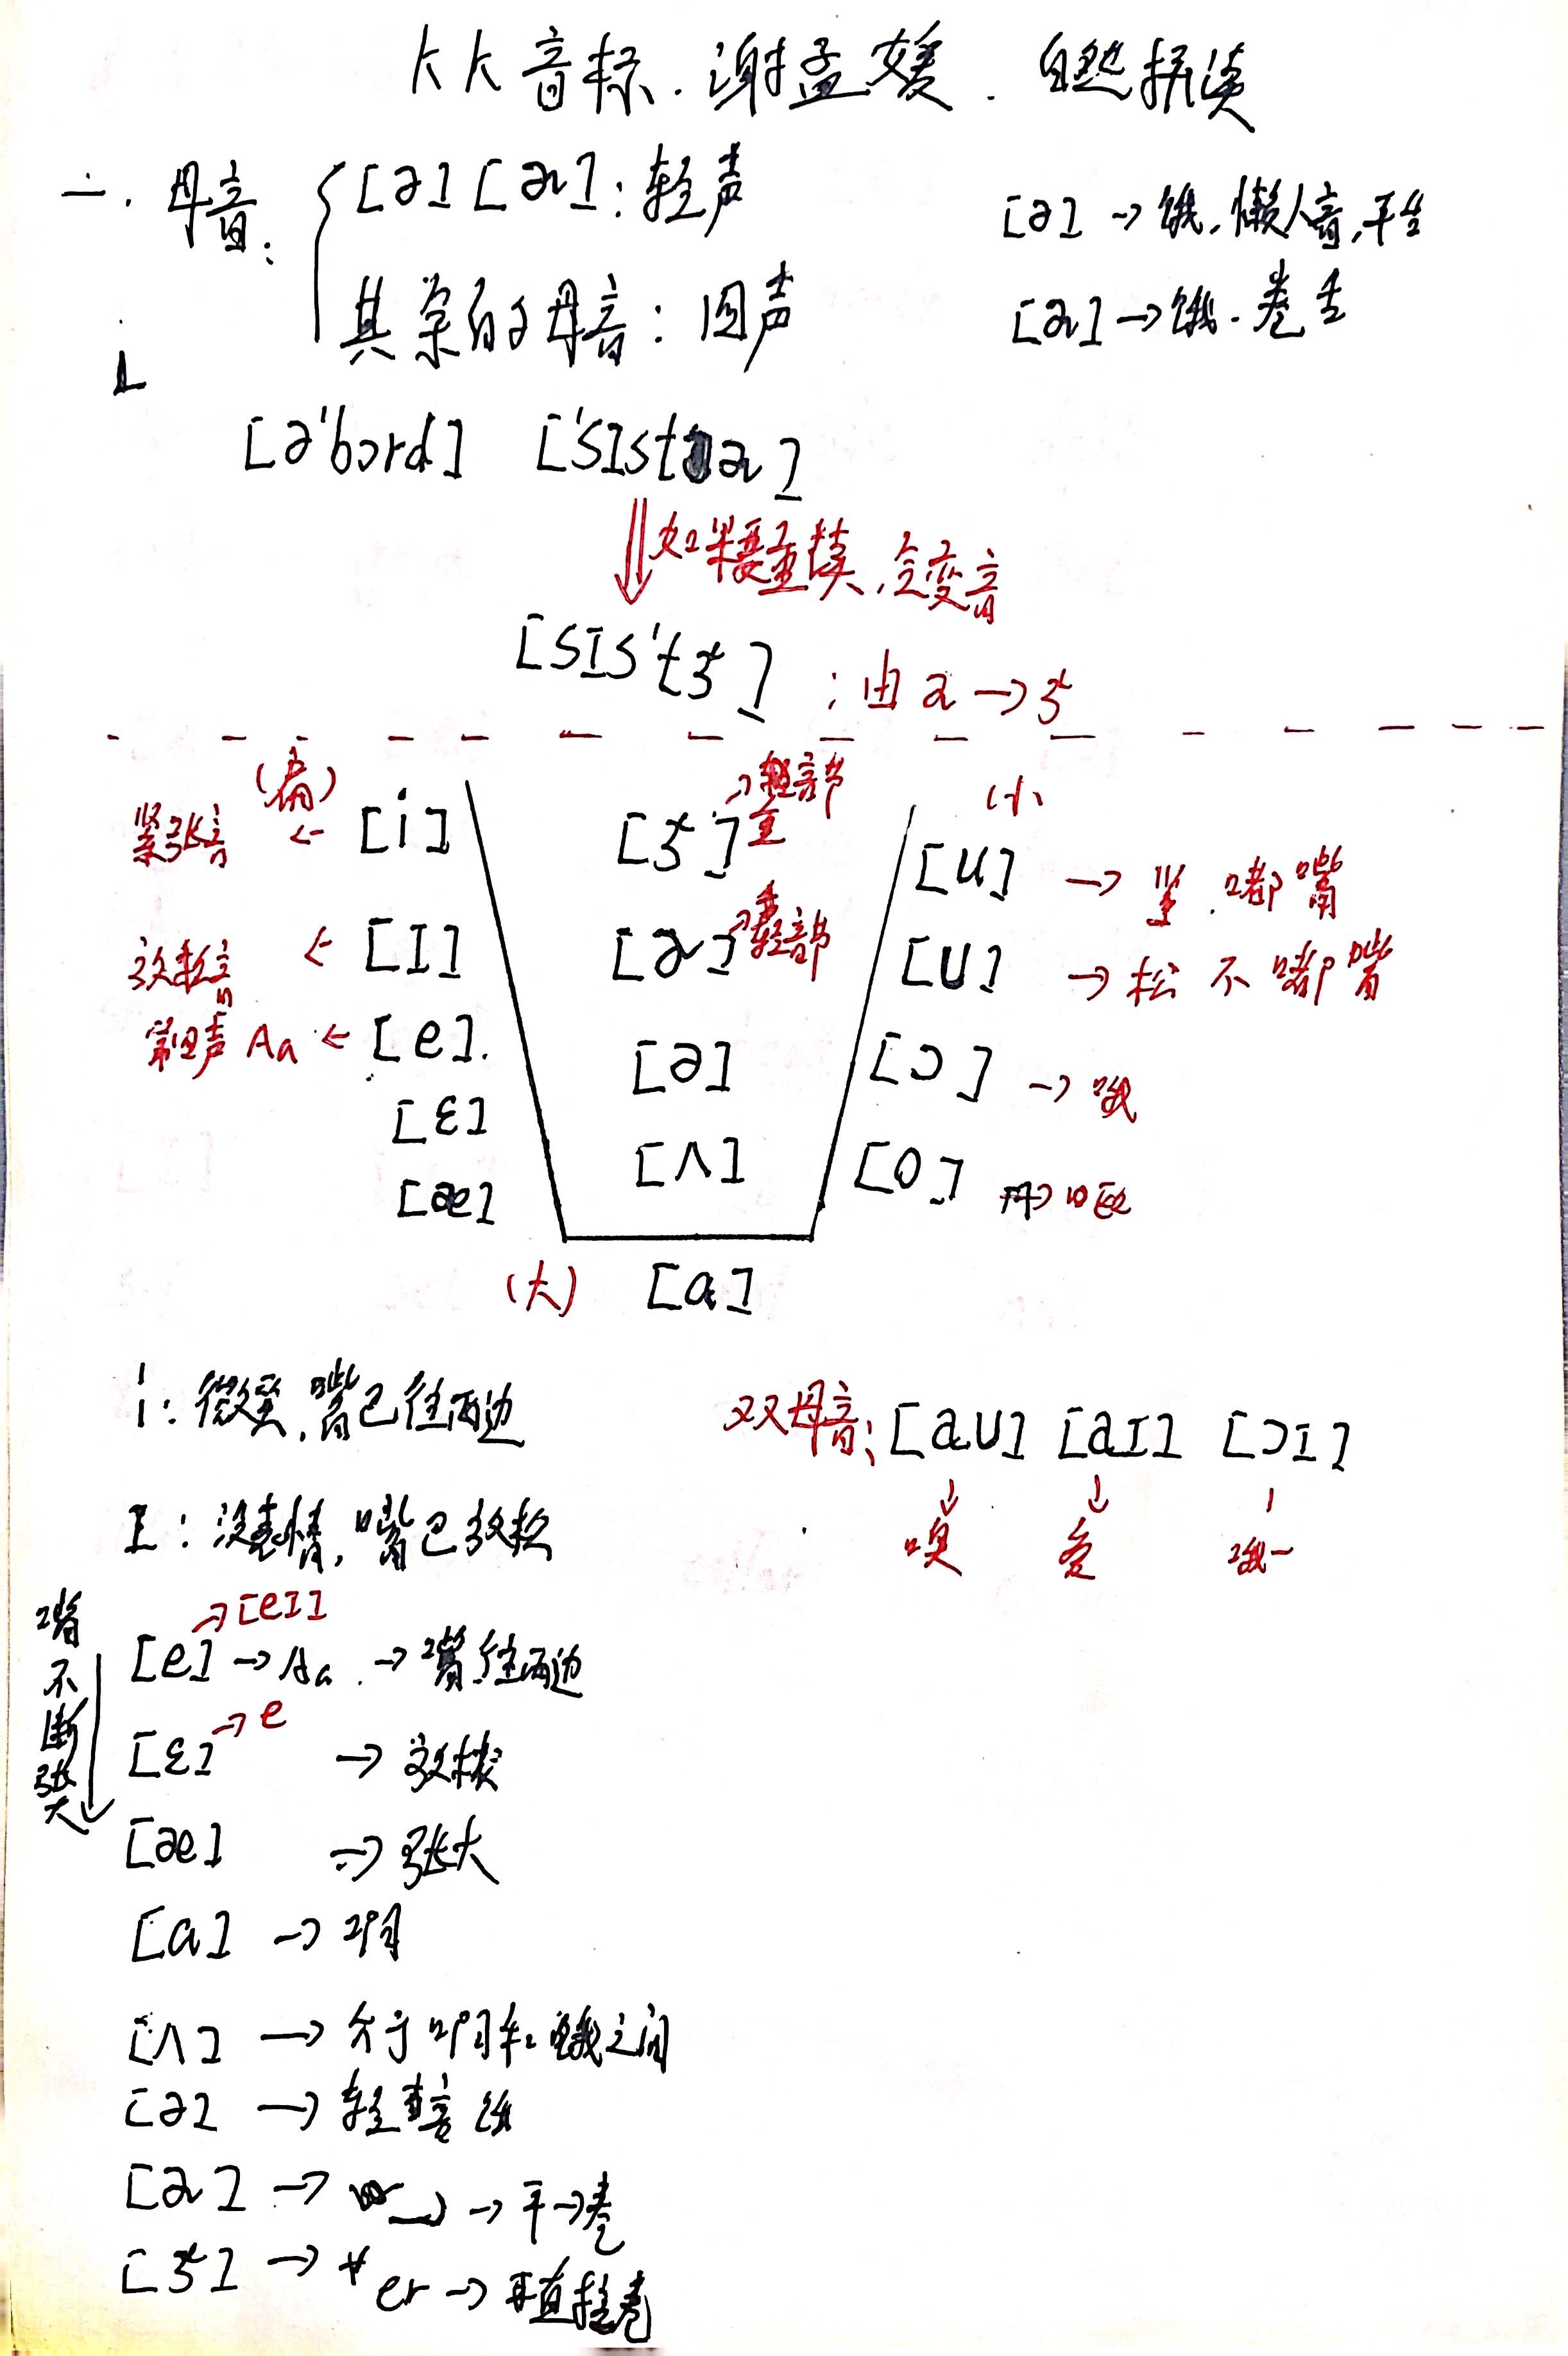 KK音标.谢孟媛.自然拼读
一.母音: [ə] [ɚ]:轻声
其余的母音:四声
[ə]→饿.懒人音,平舌
[ɚ]→饿.卷舌
[ə'bɔrd] ['sɪstɚ]
如果要重读,会变音
[sɪs'tɝ] :由ɚ→ɝ
紧张音 (扁) ← [i]
放松音 ← [ɪ]
第四声 Aa ← [e].
[ɛ]
[æ]
[ɝ] →重音节
[ɚ] →轻音节
[ə]
[ʌ]
(小)
[u] → 紧.嘟嘴
[ʊ] → 松 不嘟嘴
[ɔ] → 哦
[o] → 呕
(大) [a]
i:微笑,嘴巴往两边
I:没表情,嘴巴放松
双母音: [aʊ] [aɪ] [ɔɪ]
嗅 爱 哦一
嘴不断张大
[e] →[eɪ] →Aa.→嘴往两边
[ɛ] →e →放松
[æ] →张大
[a] →啊
[ʌ] →介于啊和饿之间
[ə] →轻音 饿
[ɚ] → →平→卷
[ɝ] → er →直接卷